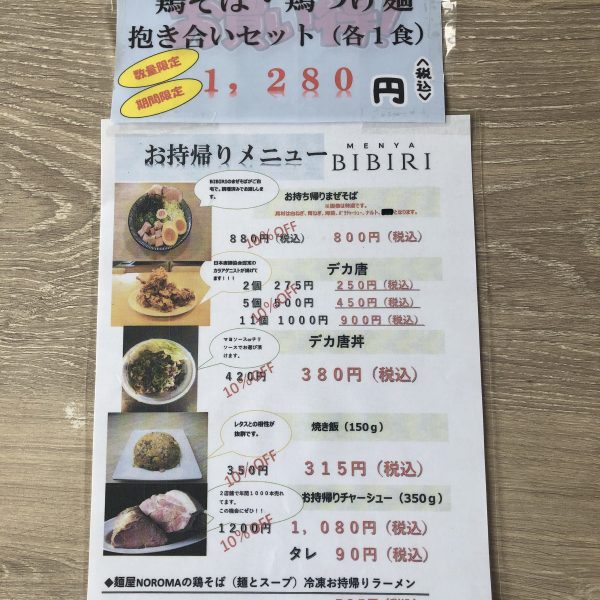 鶏そば・鶏つけ麺
抱き合いセット（各１食）
数量限定
期間限定
１，２８０円〈税込〉
お持帰りメニュー
MENYA
BIBIRI
BIBIRIのまぜそばがご自
宅で。調理済みでお渡ししま
す。
お持ち帰りまぜそば
※画像は特選です。
880円（税込）
10%OFF
800円（税込）
日本唐揚協会認定の
カラアゲニストが揚げて
ます！！！
デカ唐
10%OFF
2個 275円 250円（税込）
5個 500円 450円（税込）
11個 1000円 900円（税込）
マヨソースorチリ
ソースでお選び頂
けます。
デカ唐丼
10%OFF
420円 380円（税込）
レタスとの相性が
抜群です。
焼き飯（150g）
10%OFF
350円 315円（税込）
２店舗で年間１０００本売れ
てます。
この機会にぜひ！！
お持帰りチャーシュー（350g）
10%OFF
1200円 1，080円（税込）
タレ 90円（税込）
◆麺屋NOROMAの鶏そば（麺とスープ）冷凍お持帰りラーメン